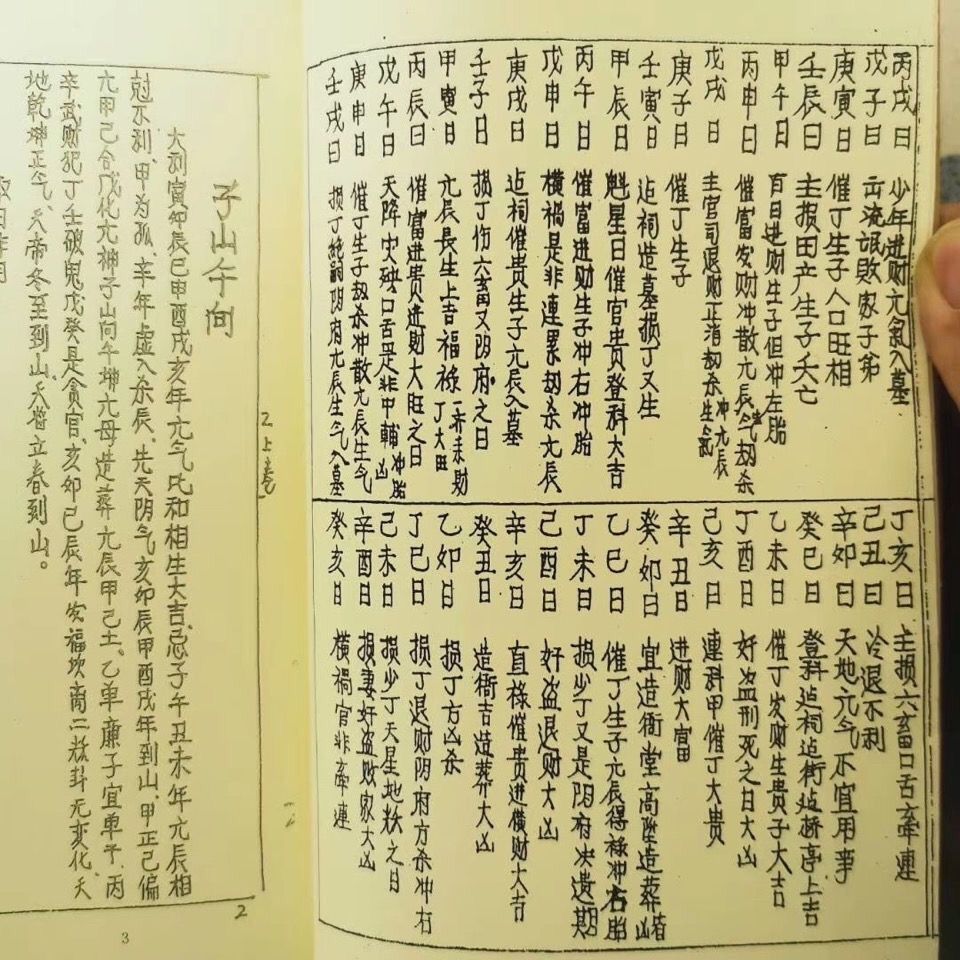 丙戌日 少年进财亢氣入墓
戊子日 両流氓败家子弟
庚寅日 催丁生子人口旺相
壬辰日 主报田产生子夭亡
甲午日 百日进财生子但冲左胎
丙申日 催富发财冲散亢辰气劫杀
戊戌日 主官司退财正消劫杀生氣冲亢辰
庚子日 催丁生子
壬寅日 迠祠造墓损丁又生
甲辰日 魁星日催官贵登科大吉
丙午日 催富进财生子冲右冲胎
戊申日 横禍是非連累劫杀亢辰
庚戌日 迠祠催贵生子亢辰入墓
壬子日 损丁伤六畜又阴府之日
甲寅日 亢辰長生上吉福禄丁大田
丙辰日 催富进贵进财大旺之日
戊午日 天降灾殃口舌是非中輔冲胎凶
庚申日 催丁生子劫杀冲散亢辰生气
壬戌日 损丁絶嗣阴府亢辰生气入墓
丁亥日 主损六畜口舌牽連
己丑日 冷退不利
辛卯日 天地元气不宜用事
癸巳日 登科迠祠迠街迠桥亭上吉
乙未日 催丁发财生贵子大吉
丁酉日 好盗刑死之日大凶
己亥日 連科甲催丁大贵
辛丑日 进财大富
癸卯日 宜造衙堂高墬造葬皆凶
乙巳日 催丁生子亢辰得禄冲右胎
丁未日 损少丁又是阴府决遗期
己酉日 好盗退财大凶
辛亥日 直禄催贵进横财大吉
癸丑日 造衙吉造葬大凶
乙卯日 损丁方凶杀
丁巳日 损丁退财阴府方杀冲右
己未日 损少丁天星地敉之日
辛酉日 损妻好盗败家大凶
癸亥日 横禍官非牽連
2上卷
子山午向
大利寅卯辰巳申酉戌亥年亢气比和相生大吉忌子午丑未年亢辰相
尅不利、甲为孤、辛年虚入杀辰、先天阴气亥卯辰甲酉戌年到山、甲正己偏
亢甲己合戊化亢神子山向午坤亢母造葬亢辰甲己土、乙单廉子宜单予、丙
辛武财犯丁壬破鬼戊癸是贪官、亥卯己辰年发福坎离二敉卦无变化、天
地乾坤正气、天帝冬至到山、天將立春到山。
2
3